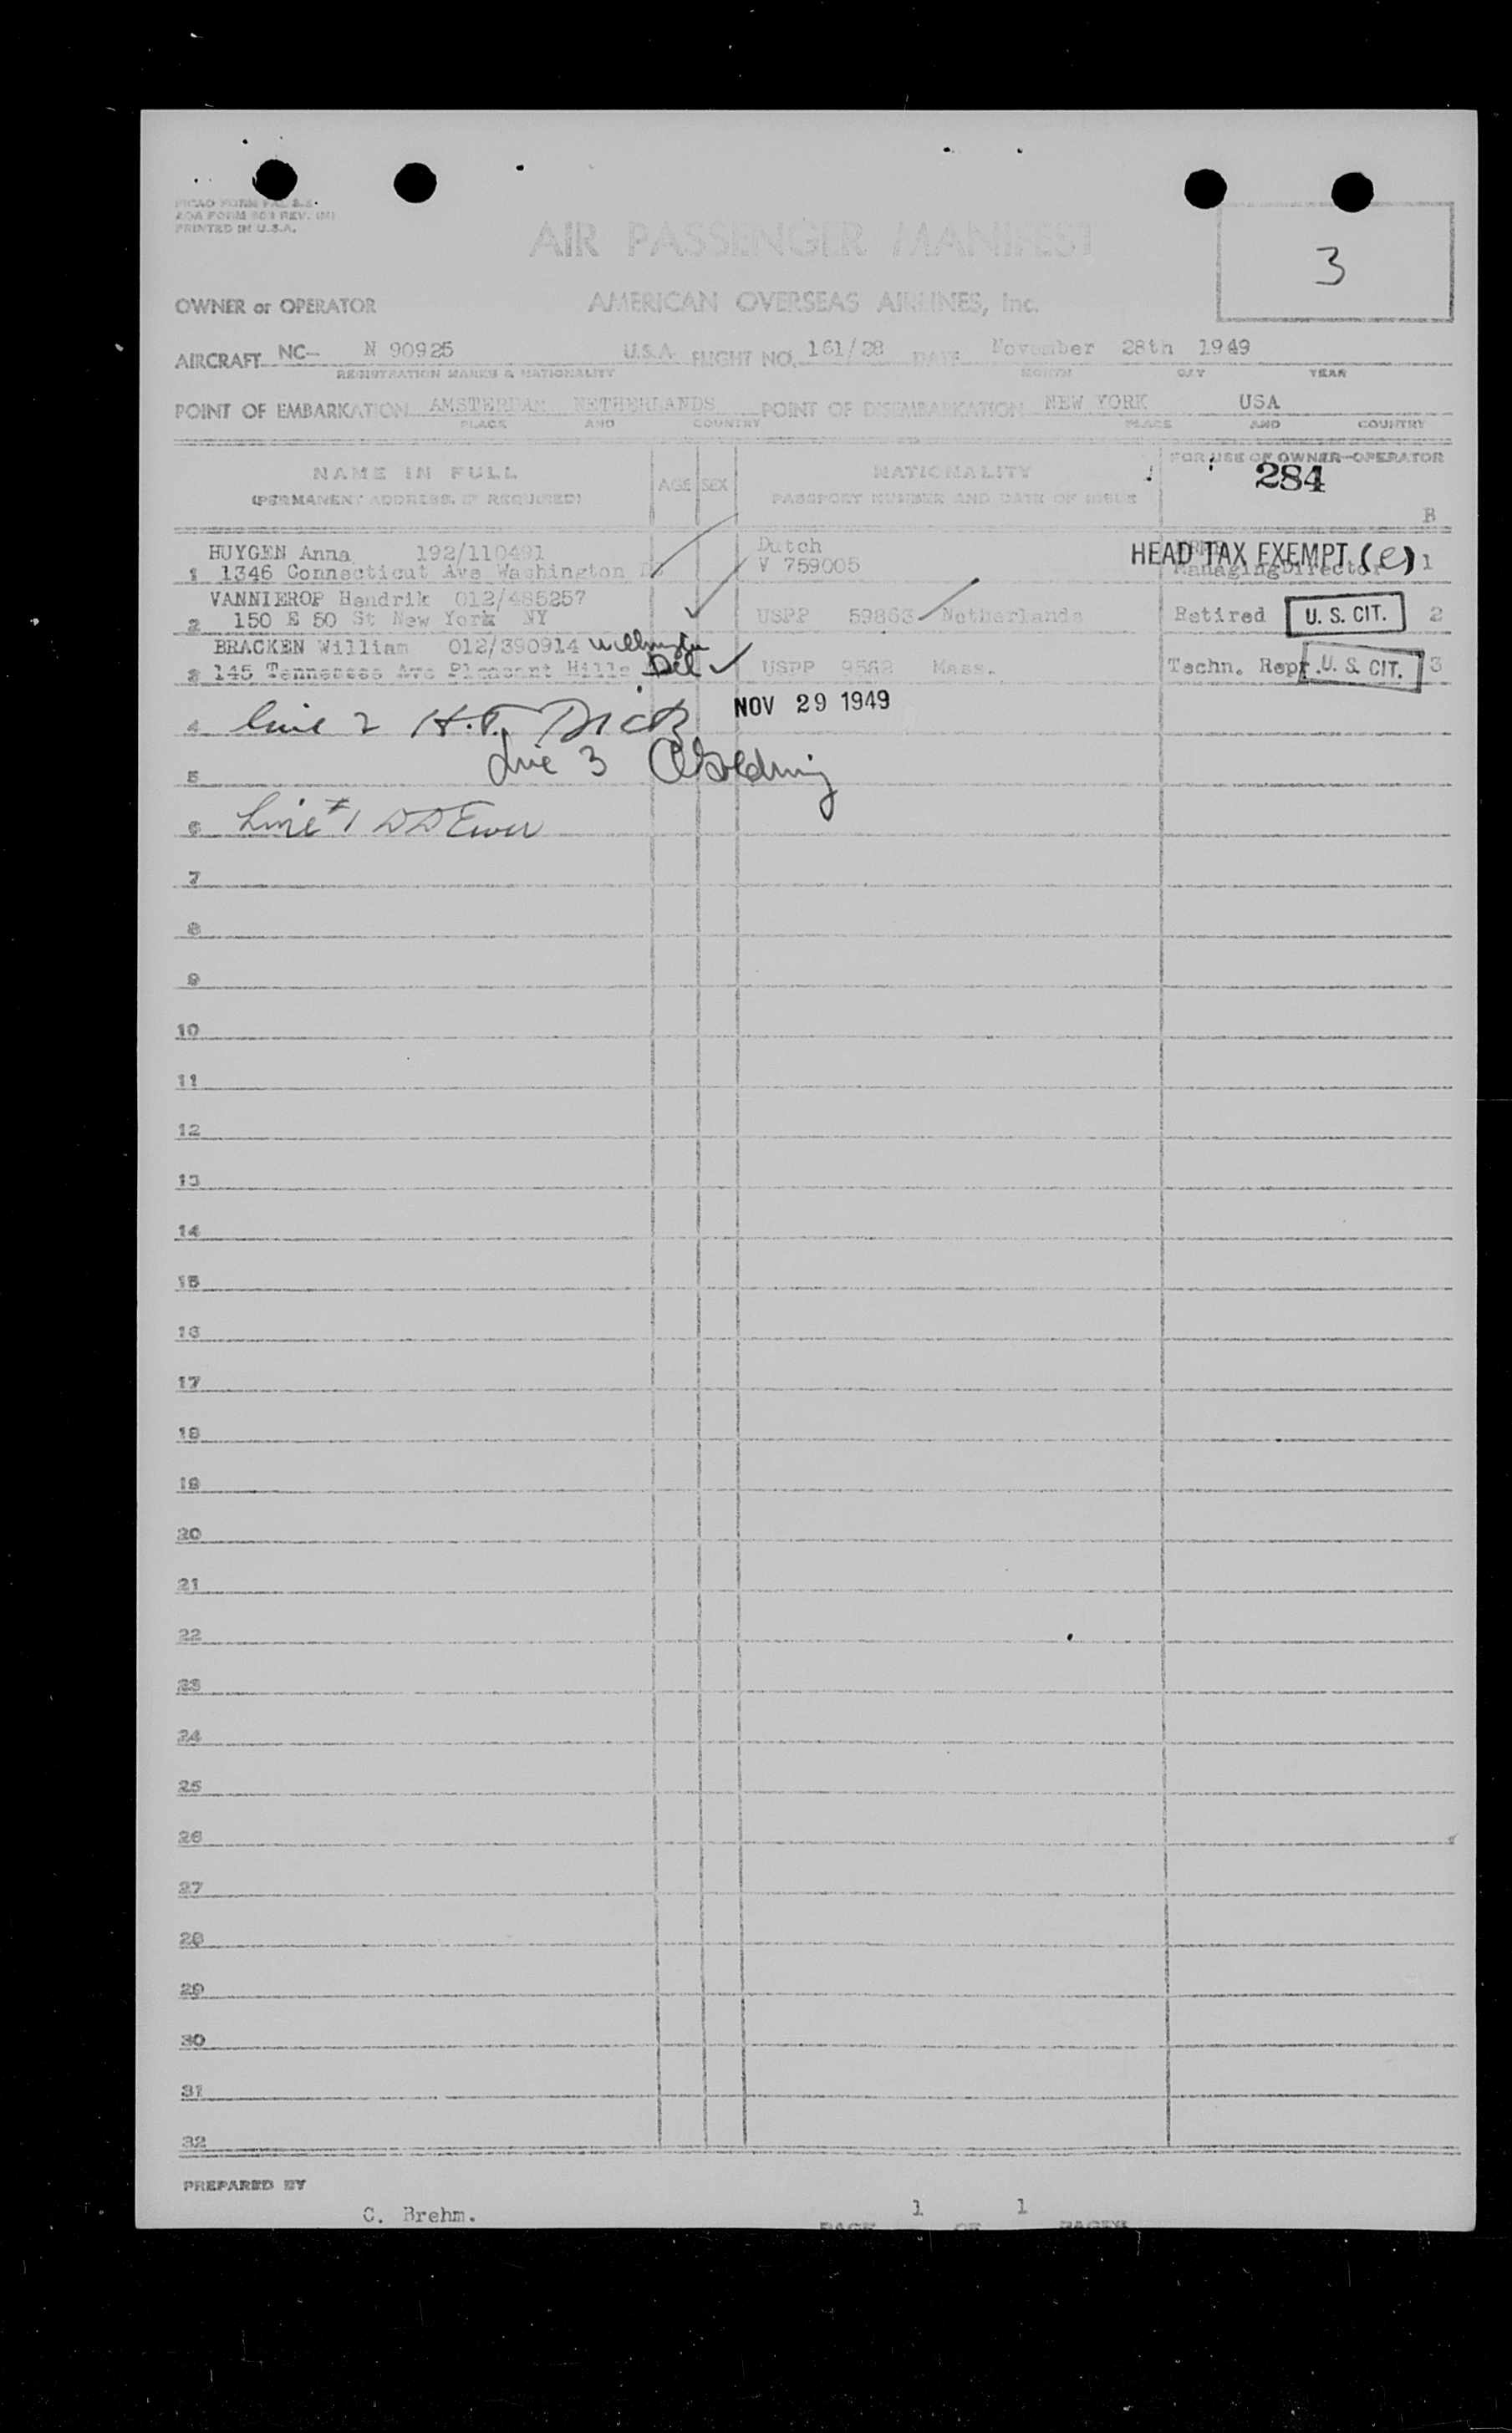 ICAO FORM FAL 2.2.
AOA FORM 803 REV.
PRINTED IN U.S.A.
AIR PASSENGER MANIFEST
3
OWNER or OPERATOR AMERICAN OVERSEAS AIRLINES, Inc.
AIRCRAFT NC- N 90925 U.S.A. FLIGHT NO. 161/28 DATE November 28th 1949
REGISTRATION MARKS & NATIONALITY MONTH DAY YEAR
POINT OF EMBARKATION AMSTERDAM NETHERLANDS POINT OF DISEMBARKATION NEW YORK USA
PLACE AND COUNTRY PLACE AND COUNTRY
NAME IN FULL AGE SEX NATIONALITY FOR USE OF OWNER-OPERATOR
(PERMANENT ADDRESS, IF REQUIRED) PASSPORT NUMBER AND DATE OF ISSUE 284
B
HUYGEN Anna 192/110491 Dutch HEAD TAX EXEMPT (e)
1 1346 Connecticut Ave Washington V 759005 Managing Director 1
VANNIEROP Hendrik 012/485257
2 150 E 50 St New York NY USPP 59863 Netherlands Retired U. S. CIT. 2
BRACKEN William 012/390914 Wilmington
3 145 Tennessee Ave Pleasant Hills Del USPP 9562 Mass. Techn. Repr. U. S. CIT. 3
NOV 29 1949
4 Line 2 H.T.
5 Line 3 Golding
6 Line #1 DD Ewer
7
8
9
10
11
12
13
14
15
16
17
18
19
20
21
22
23
24
25
26
27
28
29
30
31
32
PREPARED BY
C. Brehm.
PAGE 1 OF 1 PAGES